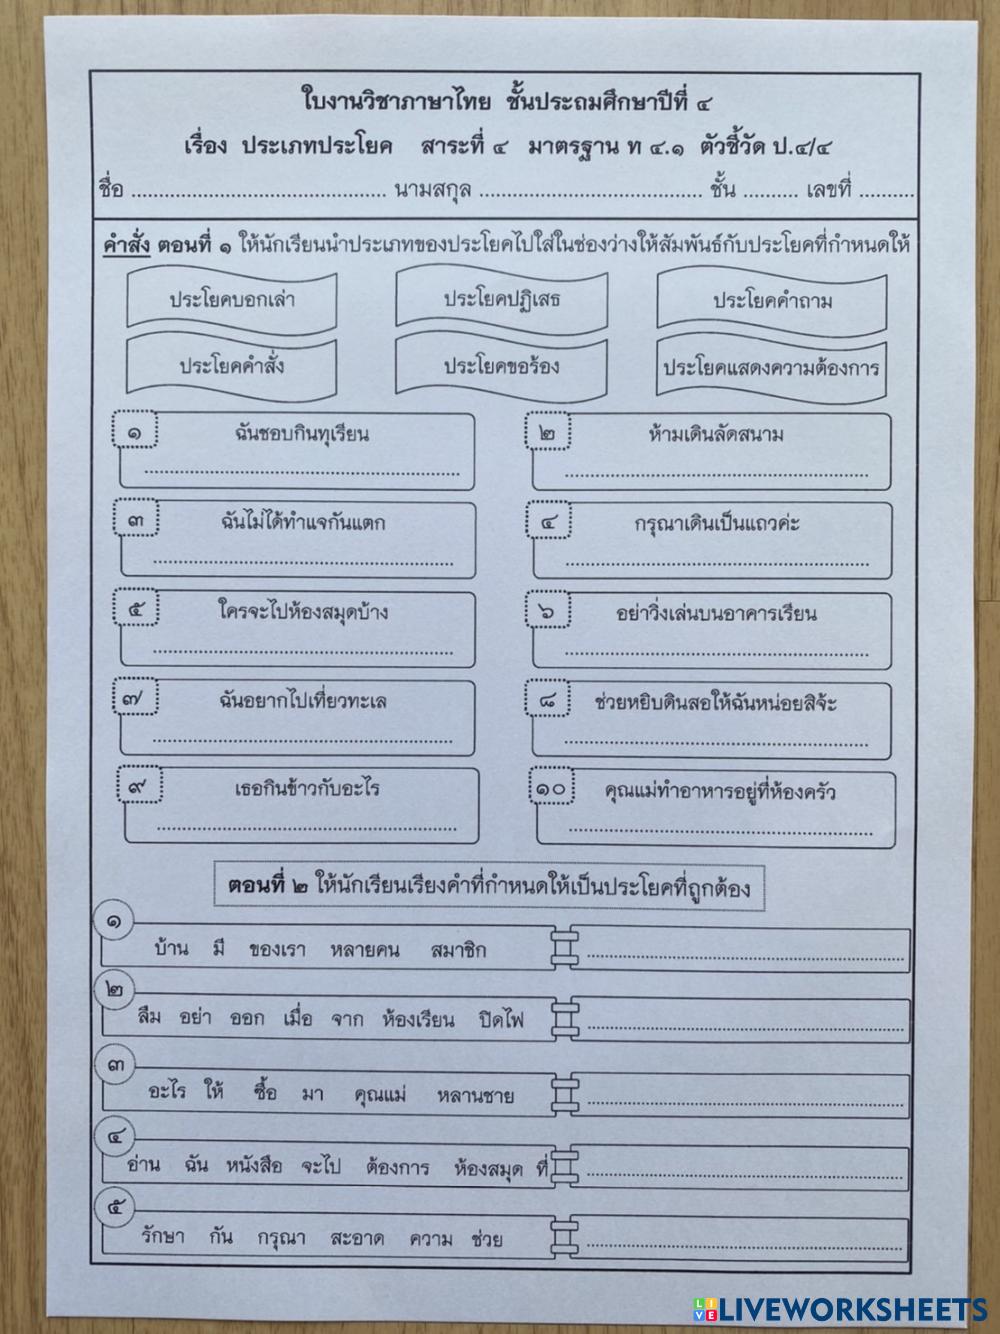 ใบงานวิชาภาษาไทย ชั้นประถมศึกษาปีที่ ๔
เรื่อง ประเภทประโยค สาระที่ ๔ มาตรฐาน ท ๔.๑ ตัวชี้วัด ป.๔/๔
ชื่อ ...................................... นามสกุล .................................. ชั้น ......... เลขที่ .........
คำสั่ง ตอนที่ ๑ ให้นักเรียนนำประเภทของประโยคไปใส่ในช่องว่างให้สัมพันธ์กับประโยคที่กำหนดให้
ประโยคบอกเล่า ประโยคปฏิเสธ ประโยคคำถาม
ประโยคคำสั่ง ประโยคขอร้อง ประโยคแสดงความต้องการ
๑ ฉันชอบกินทุเรียน
๒ ห้ามเดินลัดสนาม
๓ ฉันไม่ได้ทำแจกันแตก
๔ กรุณาเดินเป็นแถวค่ะ
๕ ใครจะไปห้องสมุดบ้าง
๖ อย่าวิ่งเล่นบนอาคารเรียน
๗ ฉันอยากไปเที่ยวทะเล
๘ ช่วยหยิบดินสอให้ฉันหน่อยสิจ้ะ
๙ เธอกินข้าวกับอะไร
๑๐ คุณแม่ทำอาหารอยู่ที่ห้องครัว
ตอนที่ ๒ ให้นักเรียนเรียงคำที่กำหนดให้เป็นประโยคที่ถูกต้อง
๑ บ้าน มี ของเรา หลายคน สมาชิก
๒ ลืม อย่า ออก เมื่อ จาก ห้องเรียน ปิดไฟ
๓ อะไร ให้ ซื้อ มา คุณแม่ หลานชาย
๔ อ่าน ฉัน หนังสือ จะไป ต้องการ ห้องสมุด ที่
๕ รักษา กัน กรุณา สะอาด ความ ช่วย
LIVE LIVEWORKSHEETS